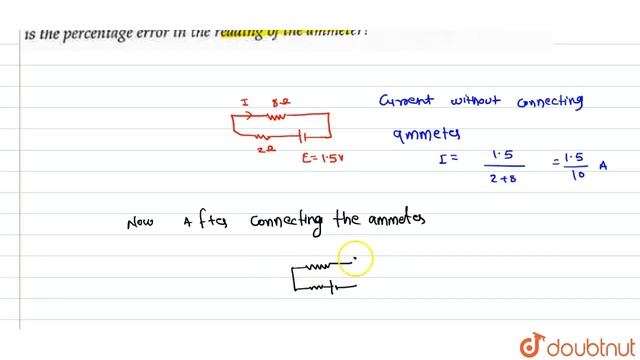 is the percentage error in the reading of the ammeter?
I 8Ω
2Ω
E = 1.5V
Current without connecting
ammeter
I = 1.5 / 2+8 = 1.5 / 10 A
Now After connecting the ammeter
doubtnut